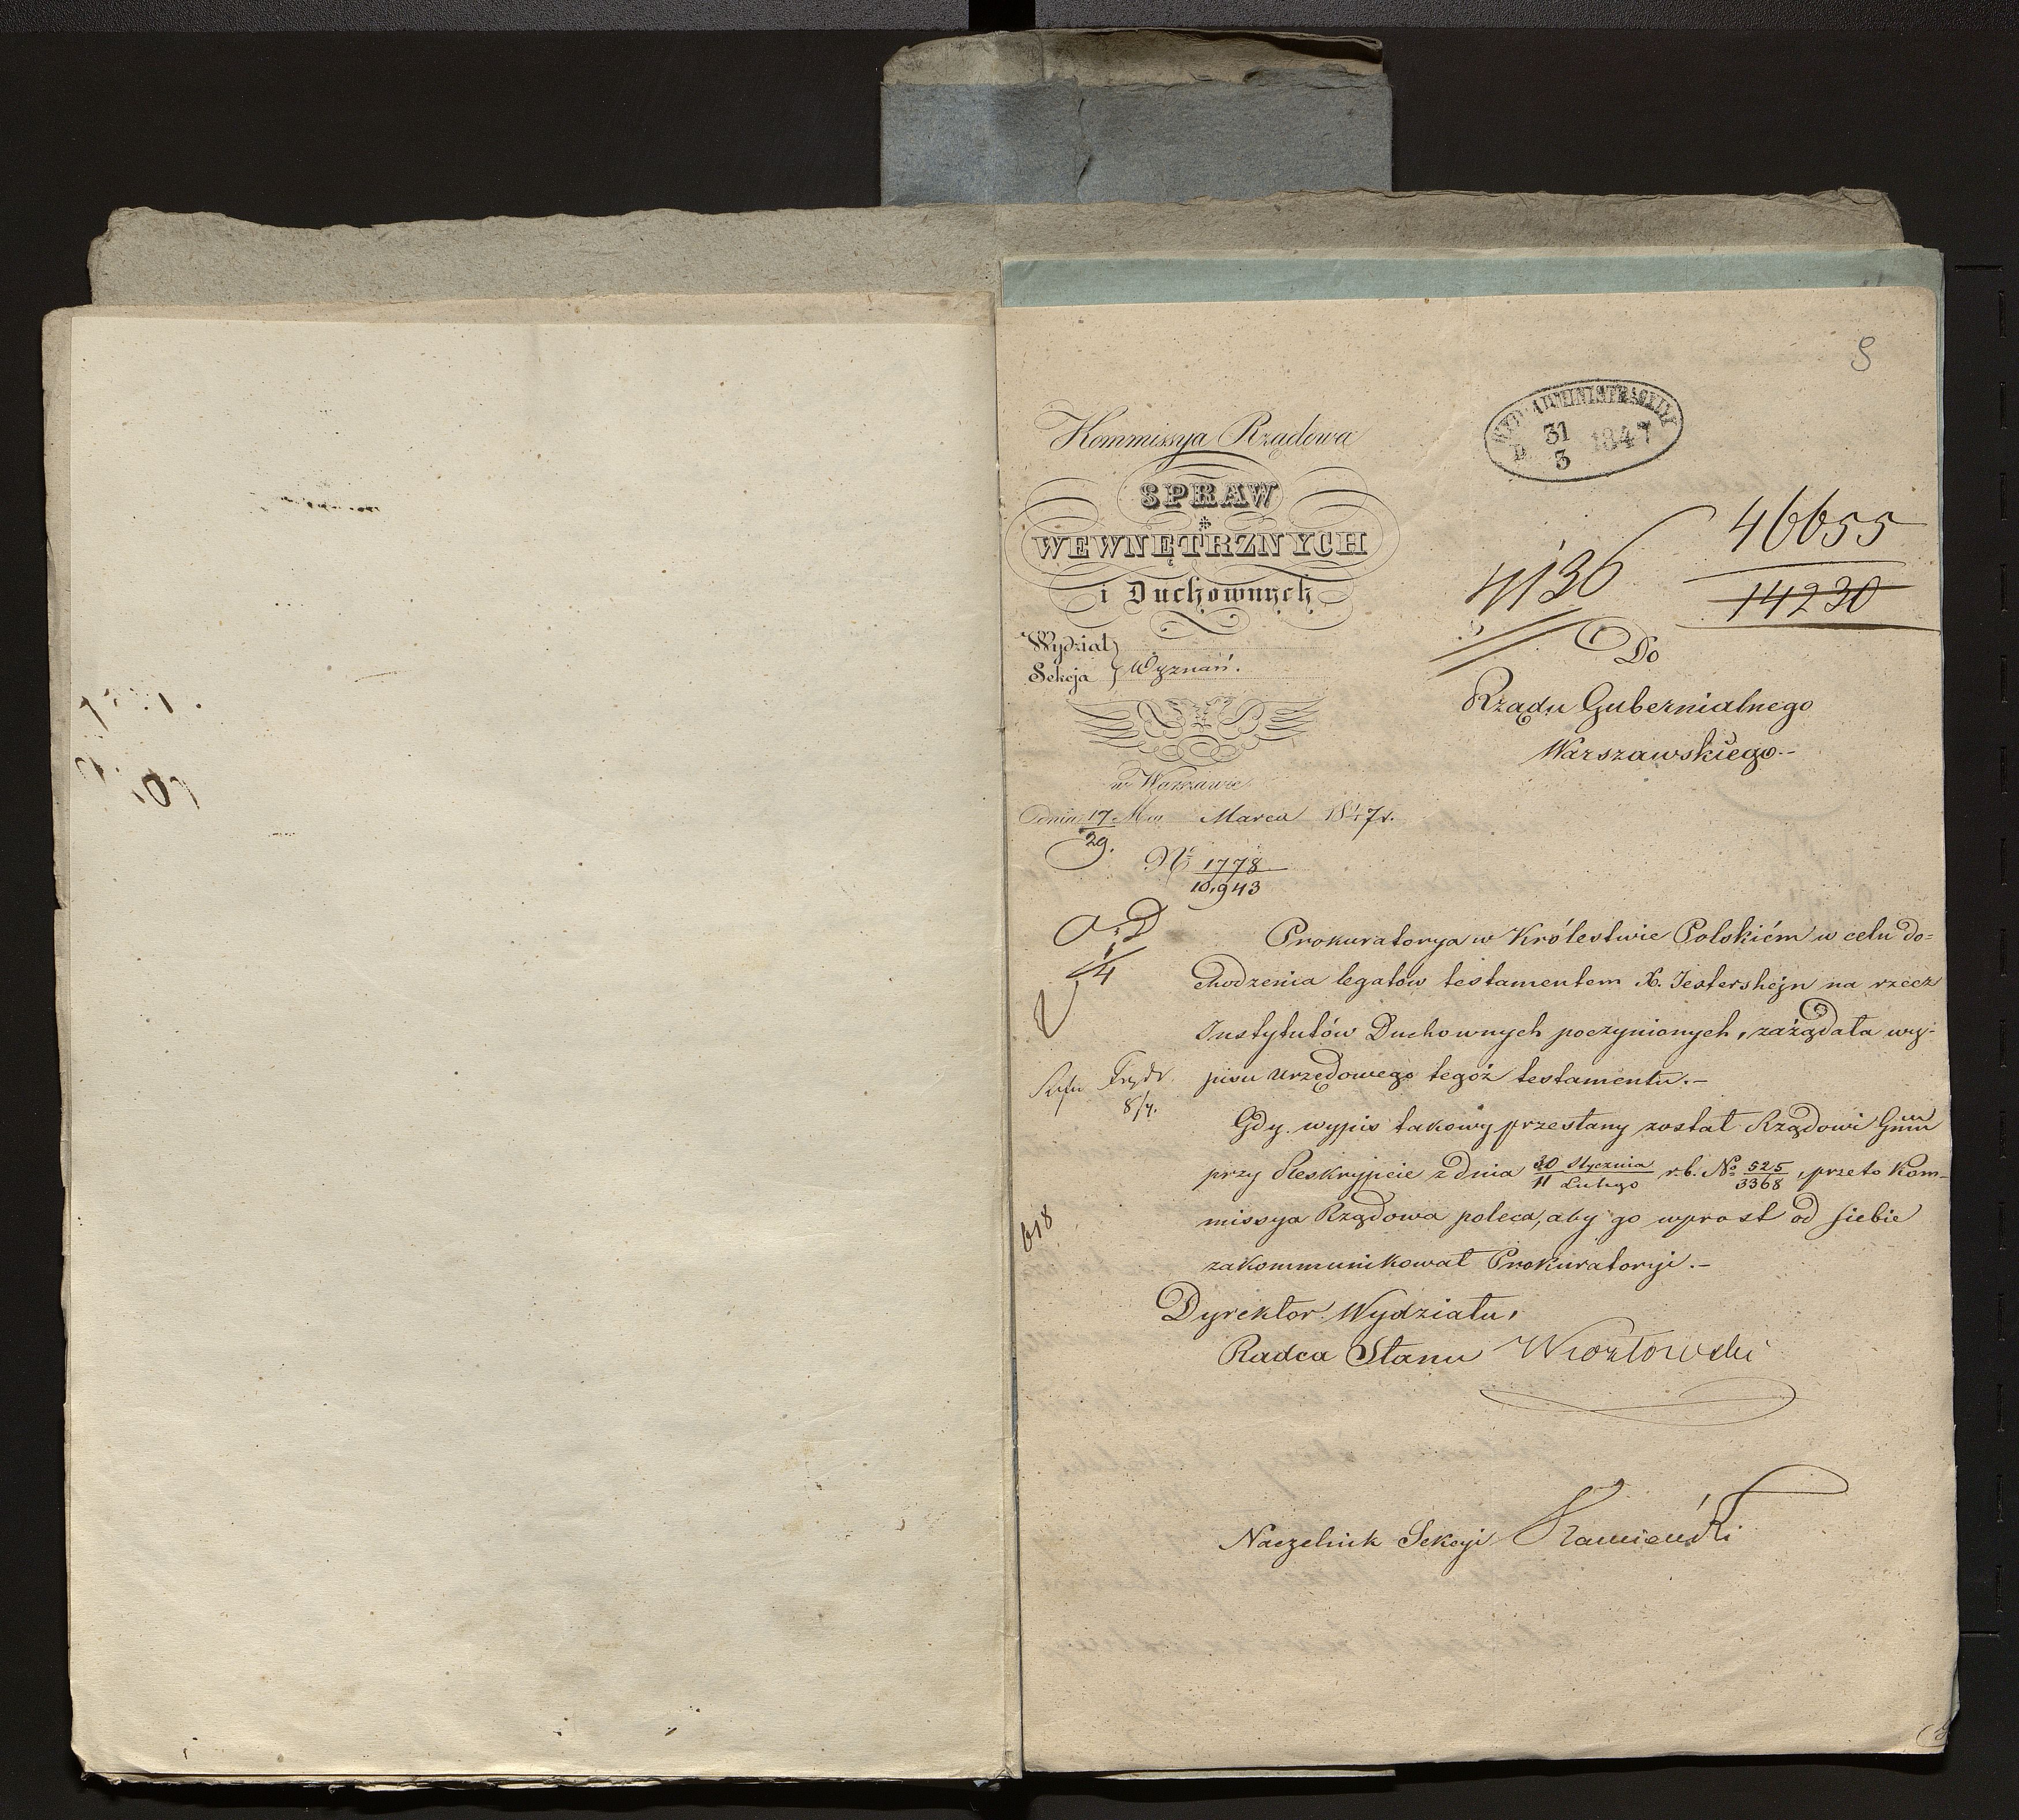 8
WYD. ADMINISTRACYJNY
D. 31/3 1847
Kommissya Rządowa
SPRAW
WEWNĘTRZNYCH
i Duchownych
46655
14230
Wydział
Sekcja } Wyznań.
Do
Rządu Gubernialnego
Warszawskiego.-
w Warszawie
dnia 17/29. Marca 1847 r.
No 1778/10,943
Prokuratorya w Królestwie Polskiém w celu do=
chodzenia legatów testamentem X. Jestershejn na rzecz
Instytutów Duchownych poczynionych, zażądała wy-
pisu urzędowego tegóż testamentu.-
8/4.
Gdy wypis takowy przesłany został Rządowi Gmu
przy Reskrypcie z dnia 30 Stycznia/11 Lutego r.b. No 525/3368, przeto Kom-
missya Rządowa poleca, aby go wprost od siebie
618
zakommunikował Prokuratoryi.-
Dyrektor Wydziału,
Radca Stanu
Naczelnik Sekcyi Kamieński